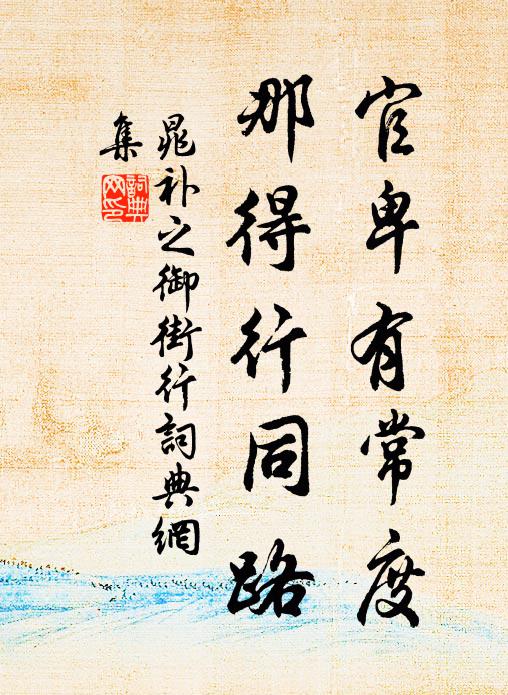 官卑有常度
那得行同路
晁补之御街行詞典網
集
詞典网印